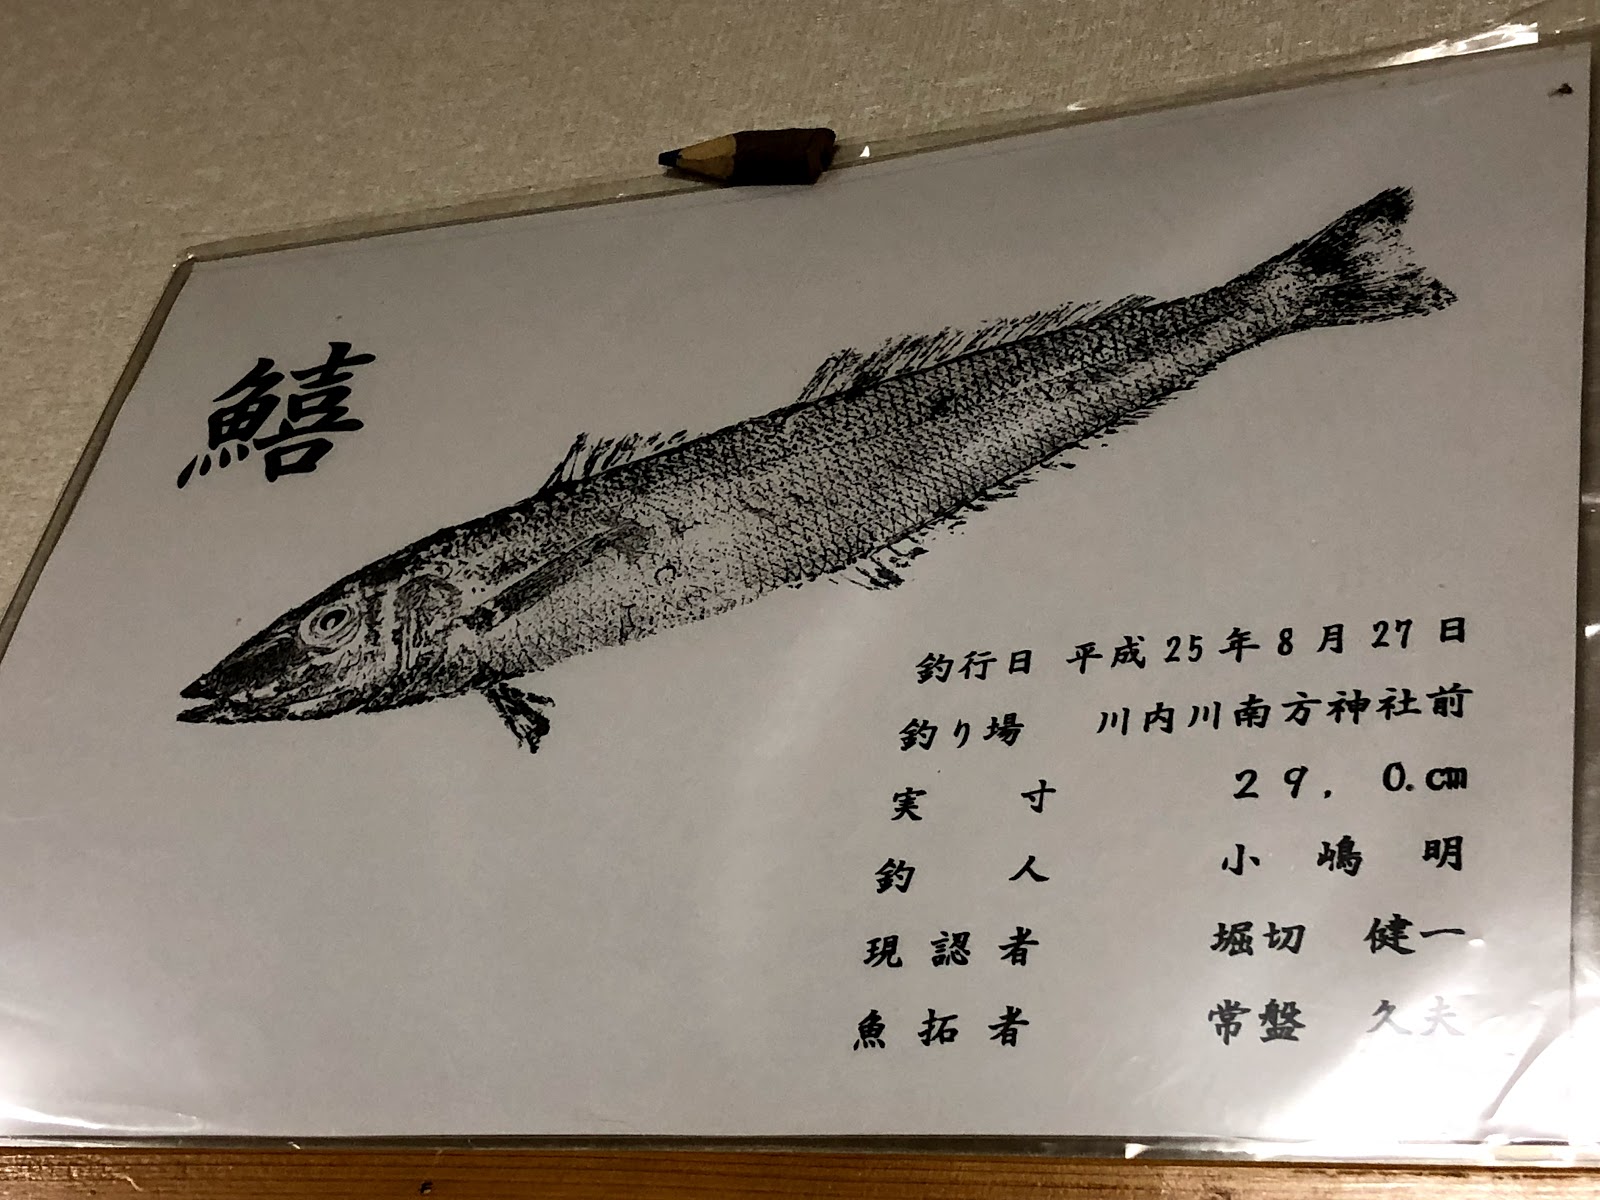 鱚
釣行日 平成25年8月27日
釣り場 川内川南方神社前
実寸 29.0.cm
釣人 小嶋明
現認者 堀切 健一
魚拓者 常盤 久夫